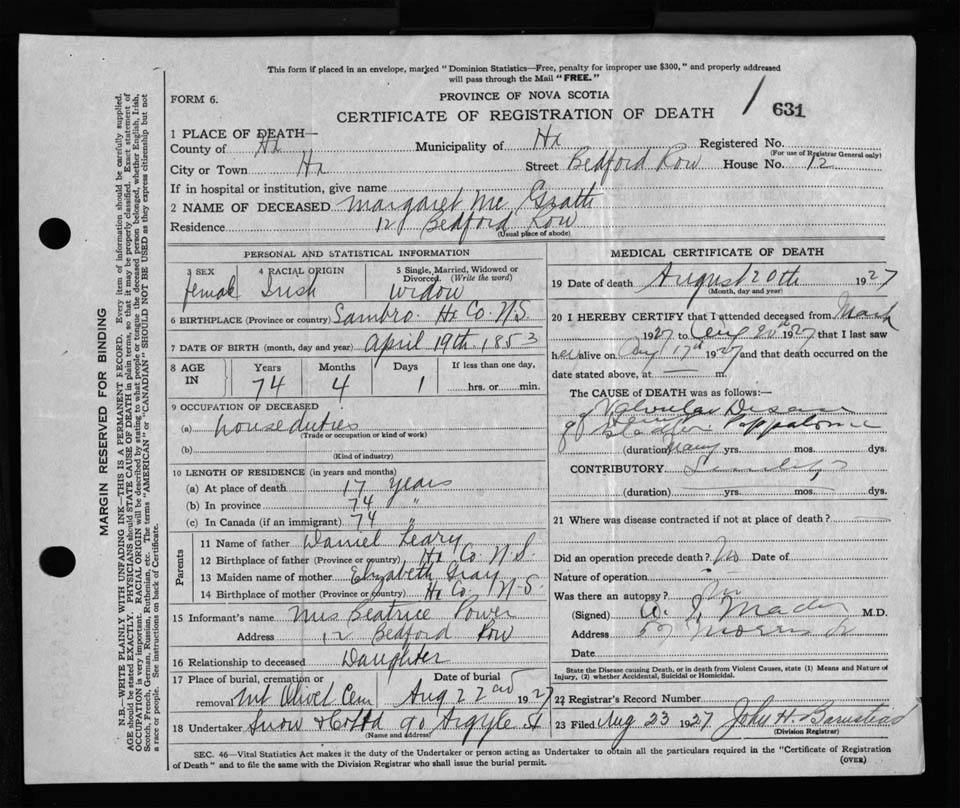 This form if placed in an envelope, marked "Dominion Statistics—Free, penalty for improper use $300," and properly addressed
will pass through the Mail "FREE."
FORM 6.
PROVINCE OF NOVA SCOTIA
CERTIFICATE OF REGISTRATION OF DEATH
631
1 PLACE OF DEATH—
County of Hx Municipality of Hx Registered No.
(For use of Registrar General only)
City or Town Hx Street Bedford Row House No. 12
If in hospital or institution, give name
2 NAME OF DECEASED Margaret Mc Grath
Residence 12 Bedford Row
(Usual place of abode)
PERSONAL AND STATISTICAL INFORMATION
3 SEX 4 RACIAL ORIGIN 5 Single, Married, Widowed or
Divorced. (Write the word)
female Irish widow
6 BIRTHPLACE (Province or country) Sambro. Hx Co. N.S.
7 DATE OF BIRTH (month, day and year) April 19th 1853
8 AGE IN Years Months Days If less than one day,
74 4 1 hrs. or min.
9 OCCUPATION OF DECEASED
(a) house duties
(Trade or occupation or kind of work)
(b)
(Kind of industry)
10 LENGTH OF RESIDENCE (in years and months)
(a) At place of death 17 years
(b) In province 74 "
(c) In Canada (if an immigrant) 74 "
Parents
11 Name of father Daniel Leary
12 Birthplace of father (Province or country) Hx Co. N.S.
13 Maiden name of mother Elizabeth Gray
14 Birthplace of mother (Province or country) Hx Co. N-S.
15 Informant's name Mrs Beatrice Power
Address 12 Bedford Row
16 Relationship to deceased Daughter
17 Place of burial, cremation or Date of burial
removal Mt Olivet Cem Aug 22nd 1927
18 Undertaker Snow & Co Ltd 90 Argyle St
(Name and address)
MEDICAL CERTIFICATE OF DEATH
19 Date of death August 20th 1927
(Month, day and year)
20 I HEREBY CERTIFY that I attended deceased from March
1927 to Aug 20th 1927 that I last saw
her alive on Aug 17th 1927 and that death occurred on the
date stated above, at — m.
The CAUSE OF DEATH was as follows:
Valvular Disease
of Heart
(duration) Many yrs. mos. dys.
CONTRIBUTORY Senility
(duration) yrs. mos. dys.
21 Where was disease contracted if not at place of death?
Did an operation precede death? No Date of
Nature of operation
Was there an autopsy? No
(Signed) W. J. Mader M.D.
Address 57 Morris St
Date
State the Disease causing Death, or in death from Violent Causes, state (1) Means and Nature of
Injury, (2) whether Accidental, Suicidal or Homicidal.
22 Registrar's Record Number
23 Filed Aug 23 1927 John H. Barnstead
(Division Registrar)
SEC. 46—Vital Statistics Act makes it the duty of the Undertaker or person acting as Undertaker to obtain all the particulars required in the "Certificate of Registration
of Death" and to file the same with the Division Registrar who shall issue the burial permit.
(OVER)
MARGIN RESERVED FOR BINDING
N.B.—WRITE PLAINLY WITH UNFADING INK—THIS IS A PERMANENT RECORD. Every item of information should be carefully supplied.
AGE should be stated EXACTLY. PHYSICIANS should STATE CAUSE OF DEATH in plain terms, so that it may be properly classified. Exact statement of
OCCUPATION is very important. RACIAL ORIGIN will be described by stating to what people or tongue the deceased person belonged, whether English, Irish,
Scotch, French, German, Russian, Ruthenian, etc. The terms "AMERICAN" or "CANADIAN" SHOULD NOT BE USED as they express citizenship but not
a race or people. See instructions on back of Certificate.